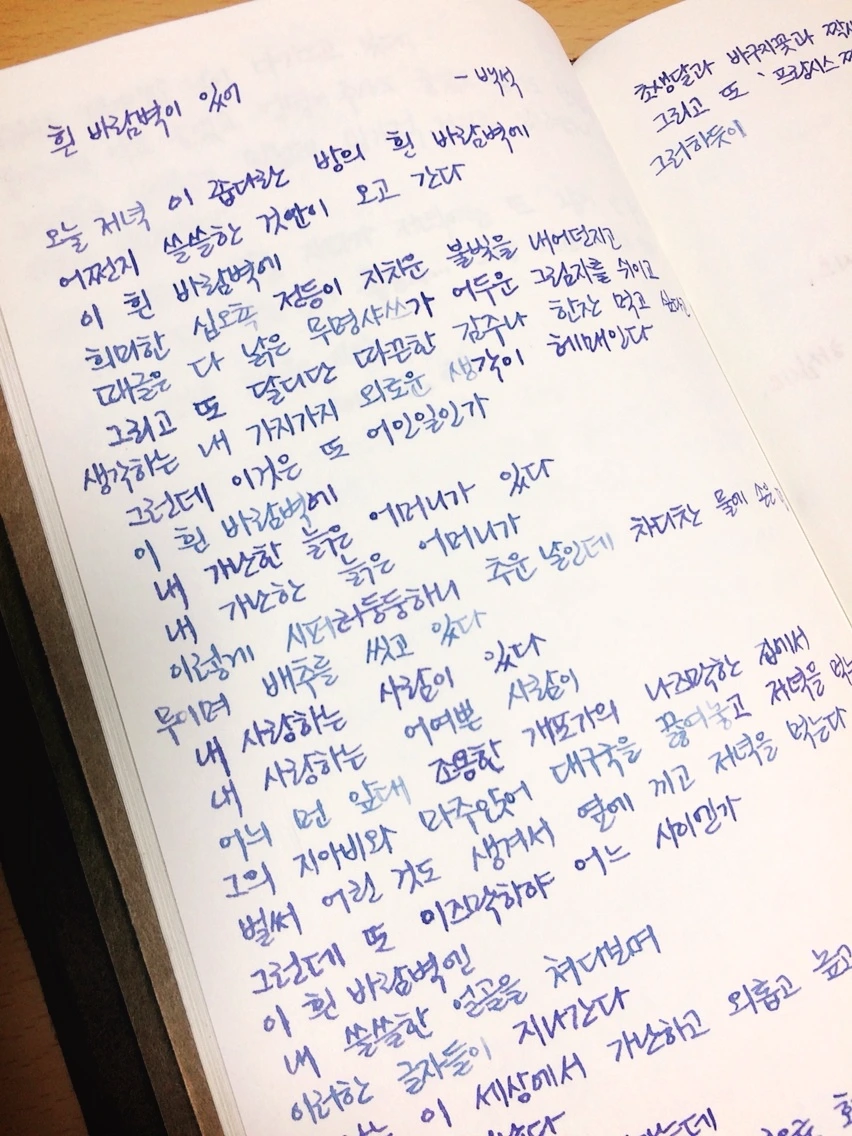 흰 바람벽이 있어
- 백석
오늘 저녁 이 좁다란 방의 흰 바람벽에
어쩐지 쓸쓸한 것만이 오고 간다
이 흰 바람벽에
희미한 십오촉 전등이 지치운 불빛을 내어던지고
때글은 다 낡은 무명샤쓰가 어두운 그림자를 쉬이고
그리고 또 달디단 따끈한 감주나 한잔 먹고 싶다고
생각하는 내 가지가지 외로운 생각이 헤매인다
그런데 이것은 또 어인일인가
이 흰 바람벽에
내 가난한 늙은 어머니가 있다
내 가난한 늙은 어머니가
이렇게 시퍼러둥둥하니 추운 날인데 차디찬 물에 손은
무이며 배추를 씻고 있다
내 사랑하는 사람이 있다
내 사랑하는 어여쁜 사람이
어늬 먼 앞대 조용한 개포가의 나즈막한 집에서
그의 지아비와 마주앉어 대구국을 끓여놓고 저녁을 먹는
벌써 어린 것도 생겨서 옆에 끼고 저녁을 먹는다
그런데 또 이즈막하야 어느 사이엔가
이 흰 바람벽엔
내 쓸쓸한 얼골을 쳐다보며
이러한 글자들이 지나간다
는 이 세상에서 가난하고 외롭고 높고
초생달과 바구지꽃과 짝새
그리고 또 '프랑시스 쨔
그러하듯이